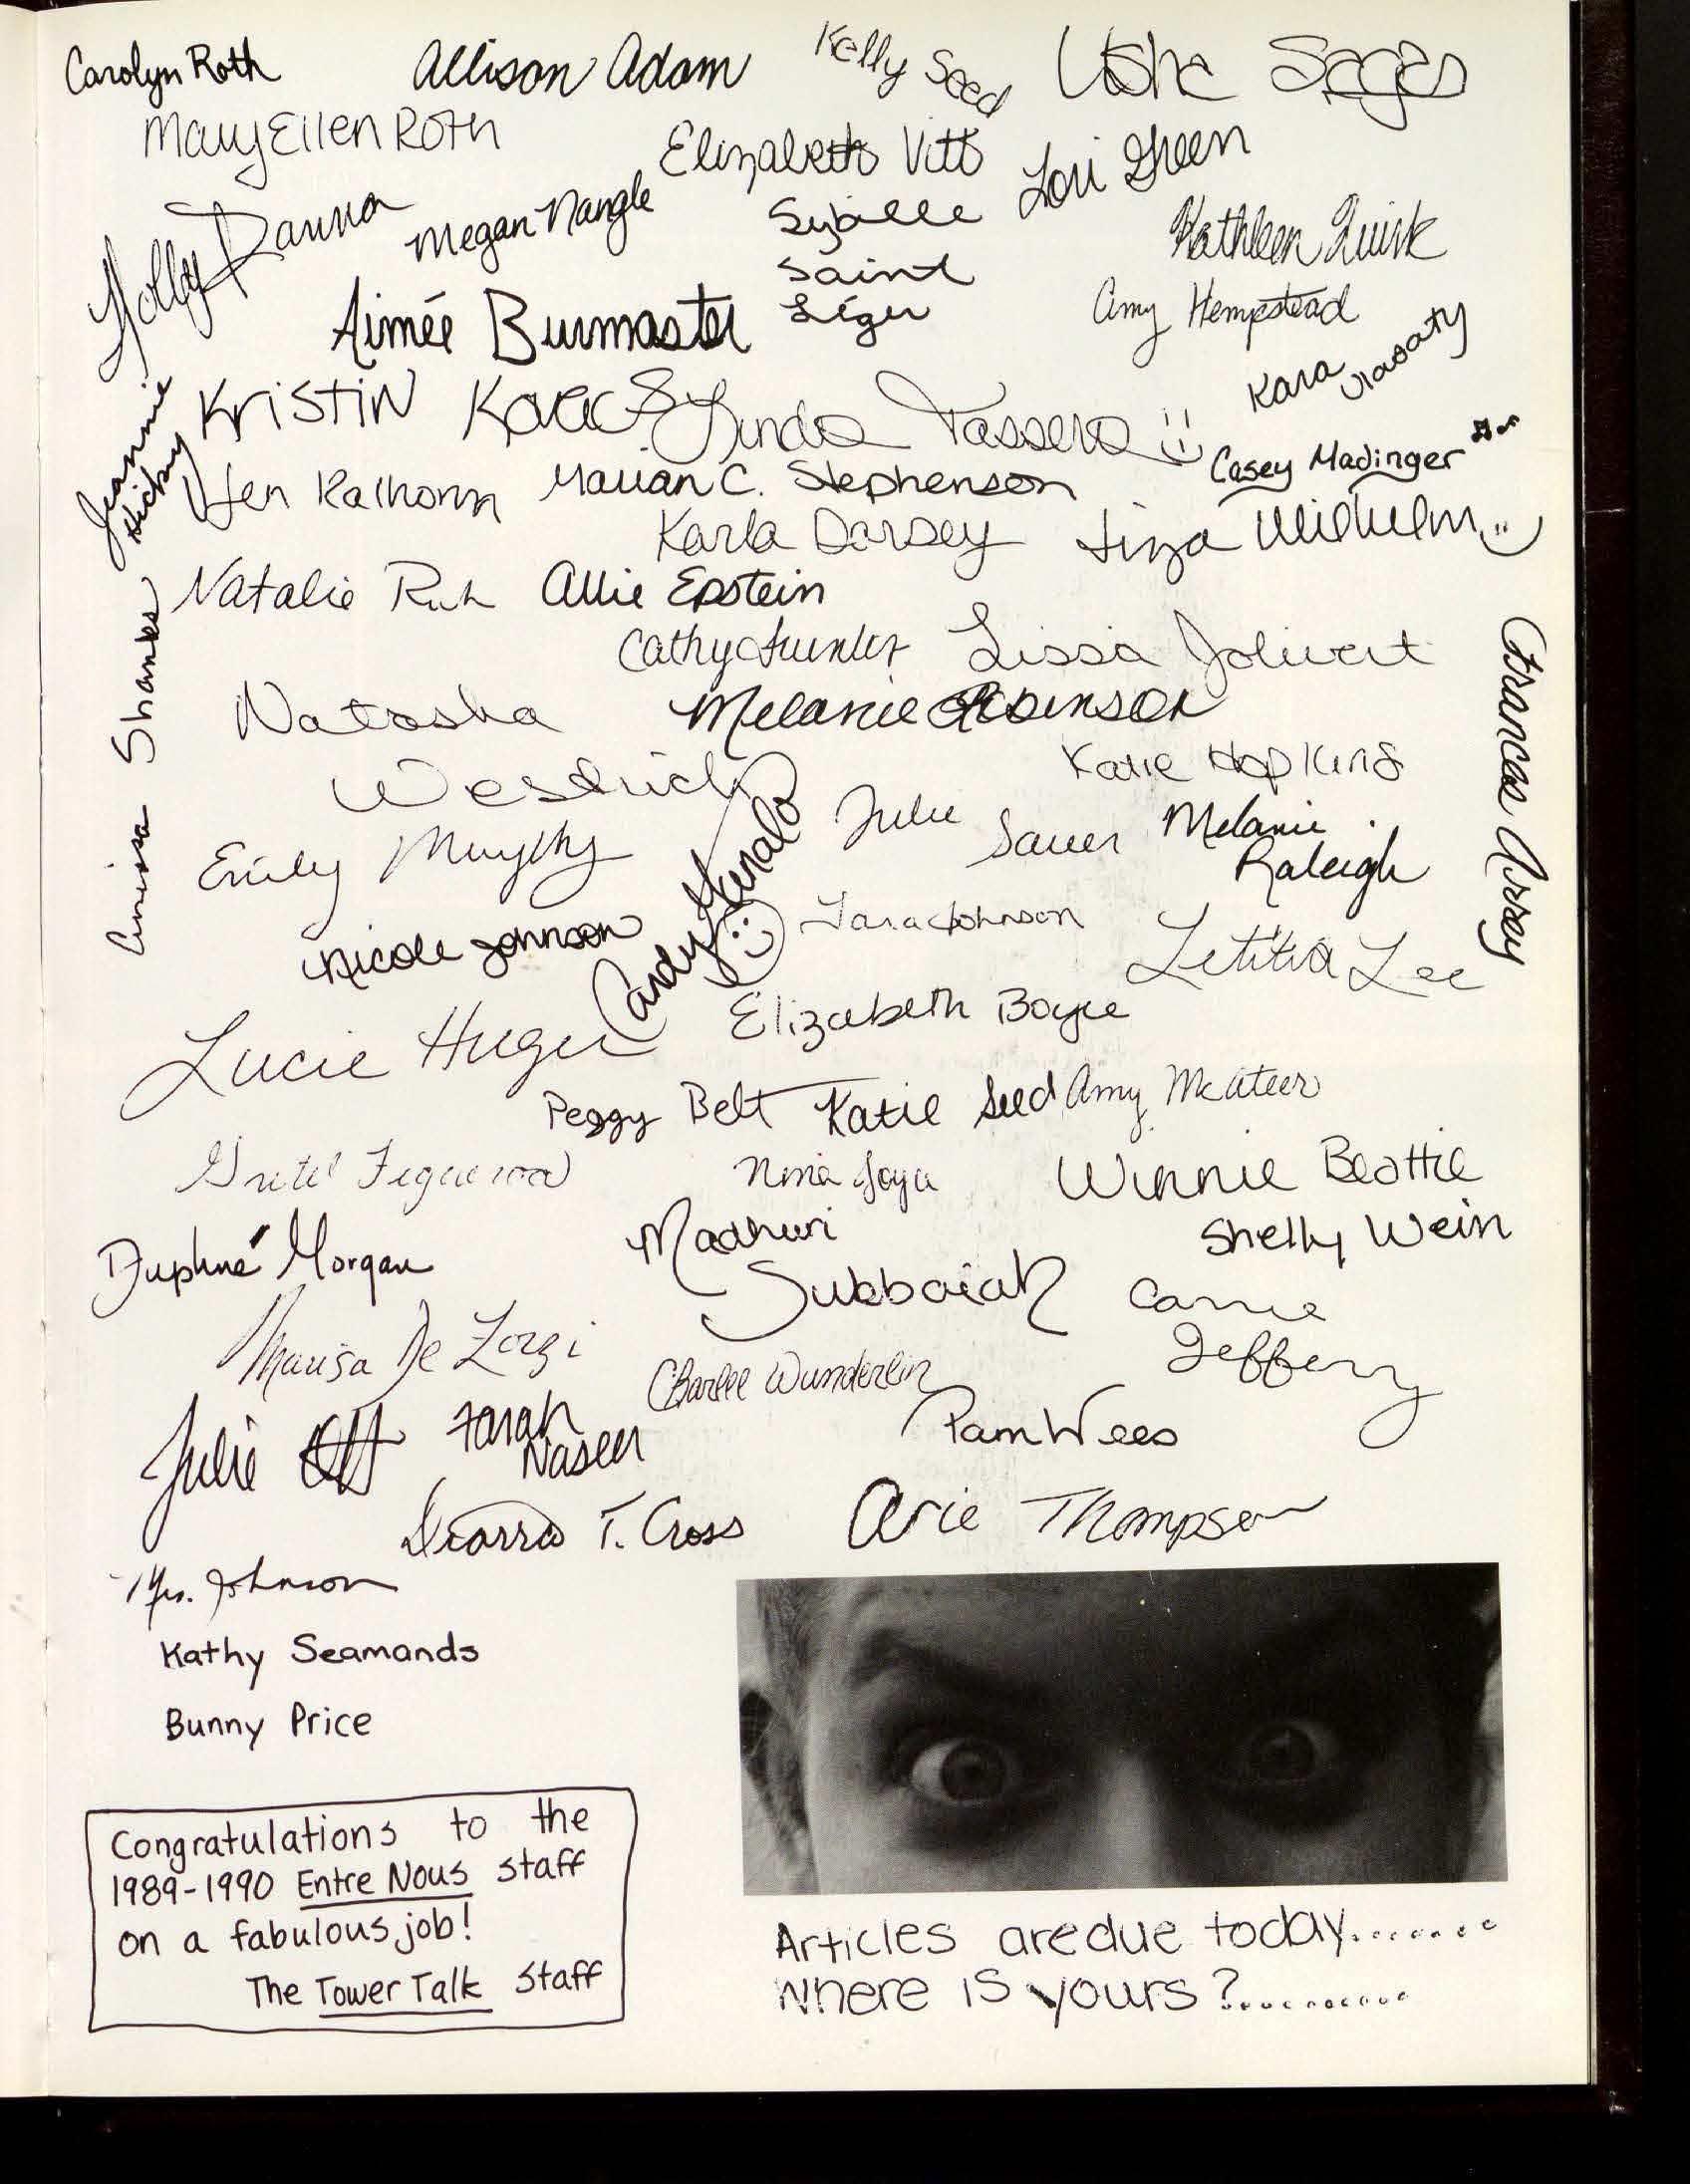 Carolyn Roth
Allison Adam
Kelly Seed
Usha Sagar
Mary Ellen Roth
Elizabeth Vitt
Lori Green
Holly Danna
Megan Nangle
Sybille
Saint
Léger
Kathleen Quirk
Amy Hempstead
Aimée Burmaster
Kara
Jeannie
Hickey
Kristin Kovacs
Linda Tassero
Casey Madinger
Jen Kalhorn
Marian C. Stephenson
Karla Dorsey
Liza Wilhelm
Natalie
Allie Epstein
Cathy Hunter
Lissa Jolivert
Anissa Shanks
Frances Arrey
Natasha
Westrich
Melanie Robinson
Katie Hopkins
Emily Murphy
Candy
Julie Sauer
Melanie
Raleigh
Nicole Johnson
Tara Johnson
Letitia Lee
Lucie Huger
Elizabeth Boyce
Peggy Belt
Katie Seed
Amy McAteer
Gretel Figueroa
Nina
Winnie Beattie
Daphne Morgan
Madhuri
Subbaiah
Shelly Wein
Marisa De Zorzi
Carrie
Jeffery
Charlee Wunderlin
Julie Ott
Farah
Naseer
Pam Wees
T. Cross
Arie Thompson
Mrs. Johnson
Kathy Seamands
Bunny Price
Congratulations to the
1989-1990 Entre Nous staff
on a fabulous job!
The Tower Talk staff
Articles are due today........
Where is yours?...........